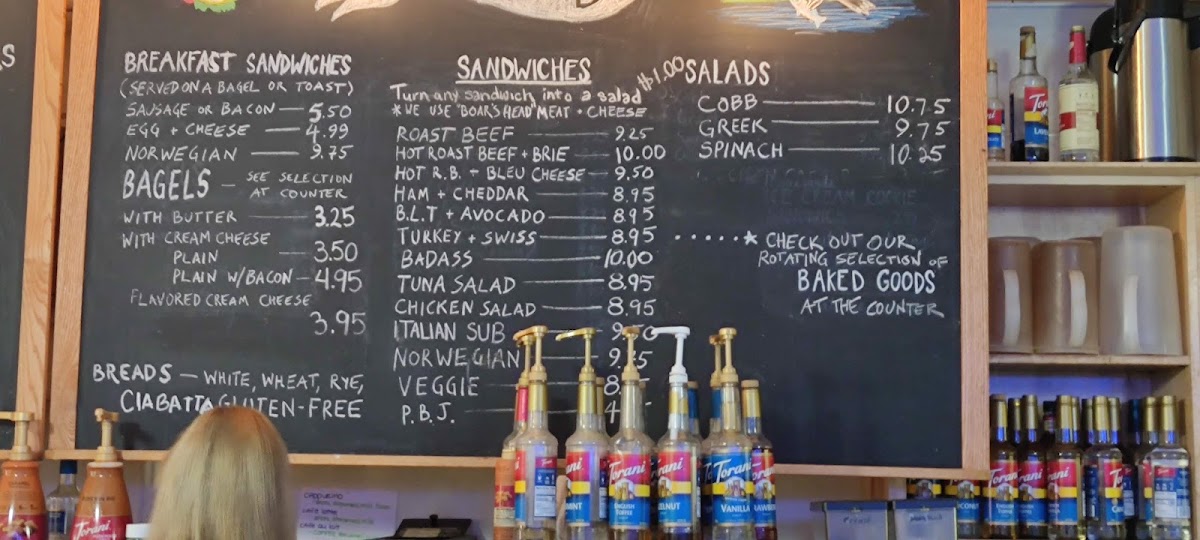 BREAKFAST SANDWICHES
(SERVED ON A BAGEL OR TOAST)
SAUSAGE OR BACON — 5.50
EGG + CHEESE — 4.99
NORWEGIAN — 9.75
BAGELS — SEE SELECTION
AT COUNTER
WITH BUTTER — 3.25
WITH CREAM CHEESE
PLAIN — 3.50
PLAIN W/BACON — 4.95
FLAVORED CREAM CHEESE
3.95
BREADS — WHITE, WHEAT, RYE,
CIABATTA GLUTEN-FREE
SANDWICHES
Turn any sandwich into a salad $1.00
*WE USE "BOAR'S HEAD" MEAT + CHEESE
ROAST BEEF — 9.25
HOT ROAST BEEF + BRIE — 10.00
HOT R.B. + BLEU CHEESE — 9.50
HAM + CHEDDAR — 8.95
B.L.T + AVOCADO — 8.95
TURKEY + SWISS — 8.95
BADASS — 10.00
TUNA SALAD — 8.95
CHICKEN SALAD — 8.95
ITALIAN SUB
NORWEGIAN
VEGGIE
P.B.J.
SALADS
COBB — 10.75
GREEK — 9.75
SPINACH — 10.25
.....* CHECK OUT OUR
ROTATING SELECTION OF
BAKED GOODS
AT THE COUNTER
Torani
Torani
Torani
Torani
Torani
Torani
ENGLISH
TOFFEE
VANILLA
Cappucino